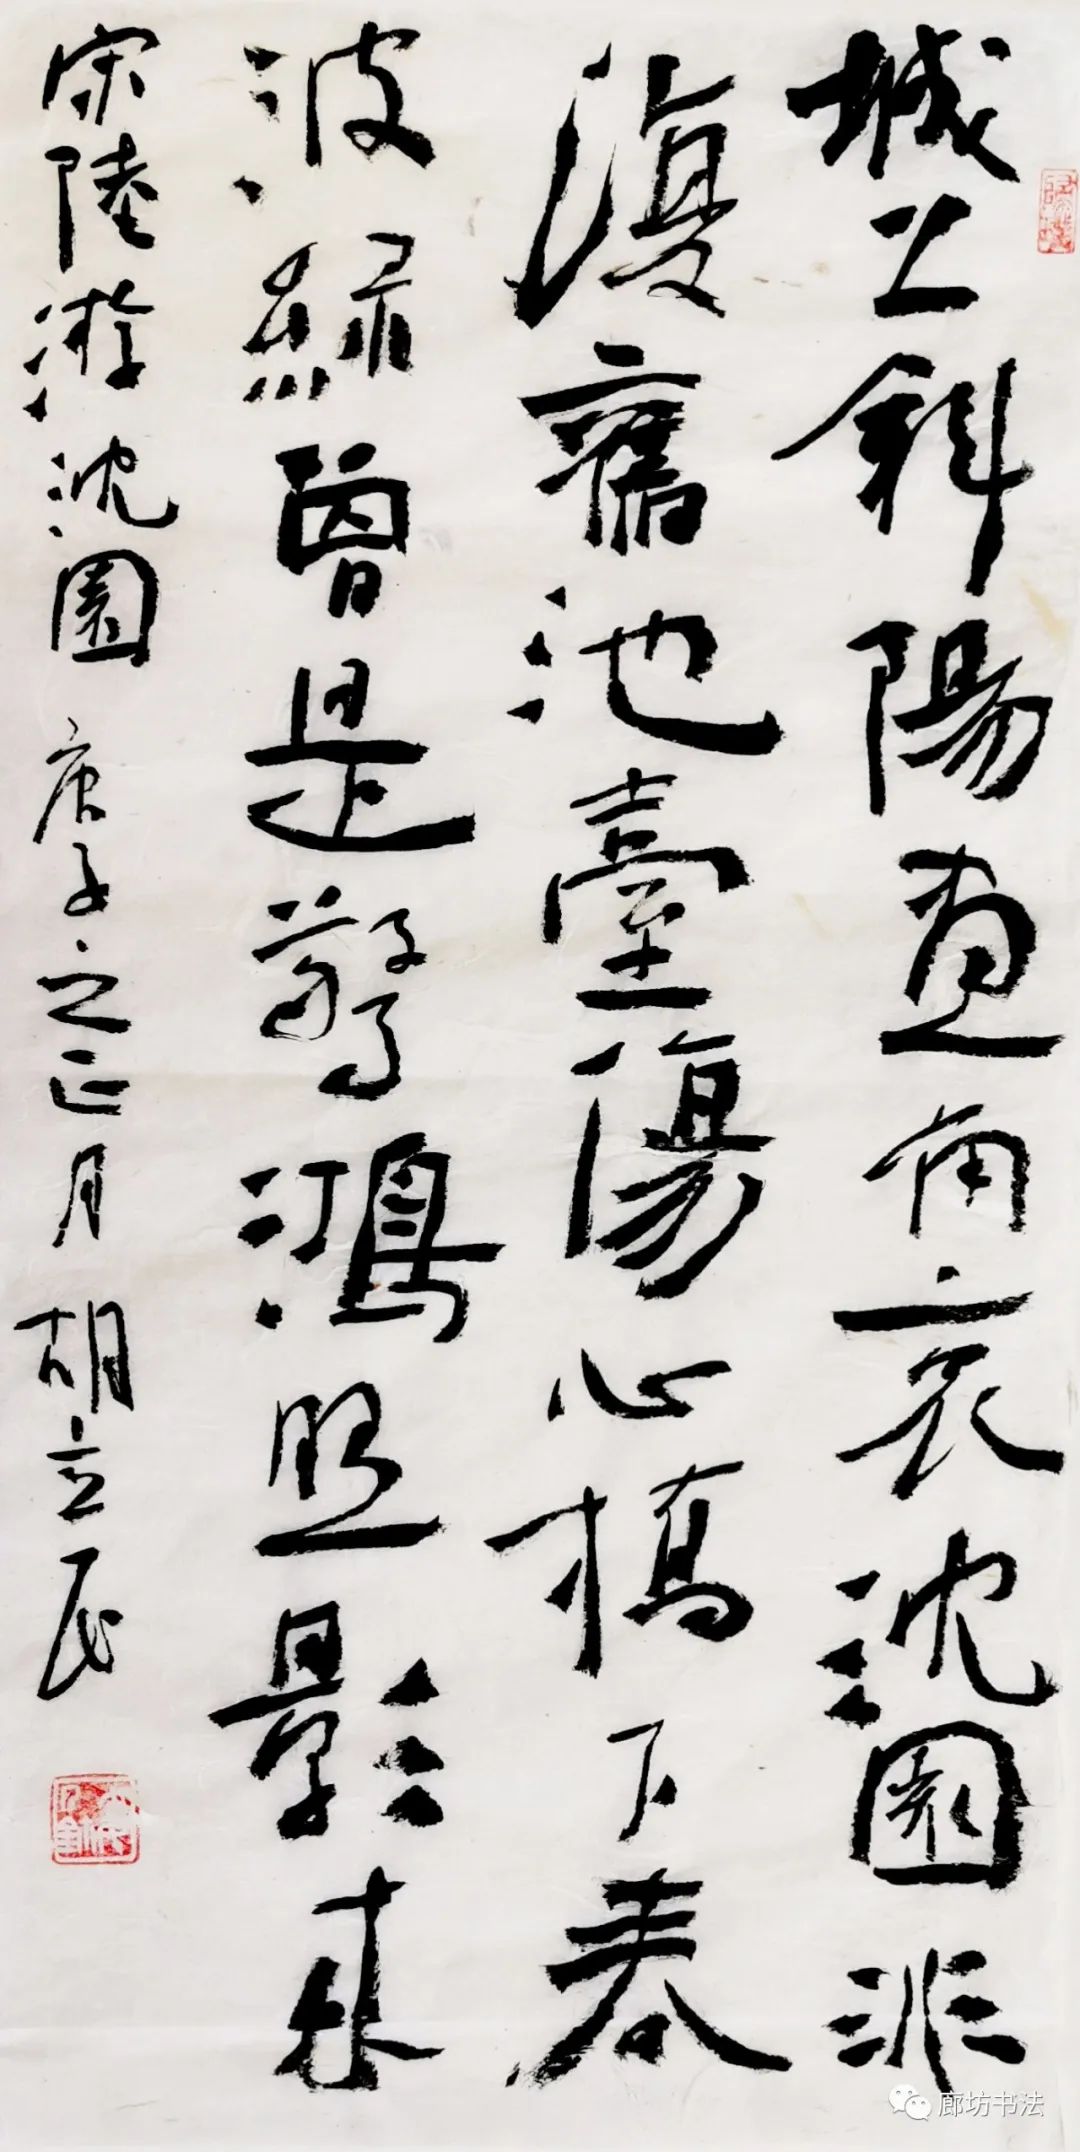 城上斜陽畫角哀沈園非
復舊池臺傷心橋下春
波綠曾是驚鴻照影來
宋陸游沈園 庚子之正月 胡立民
廊坊书法